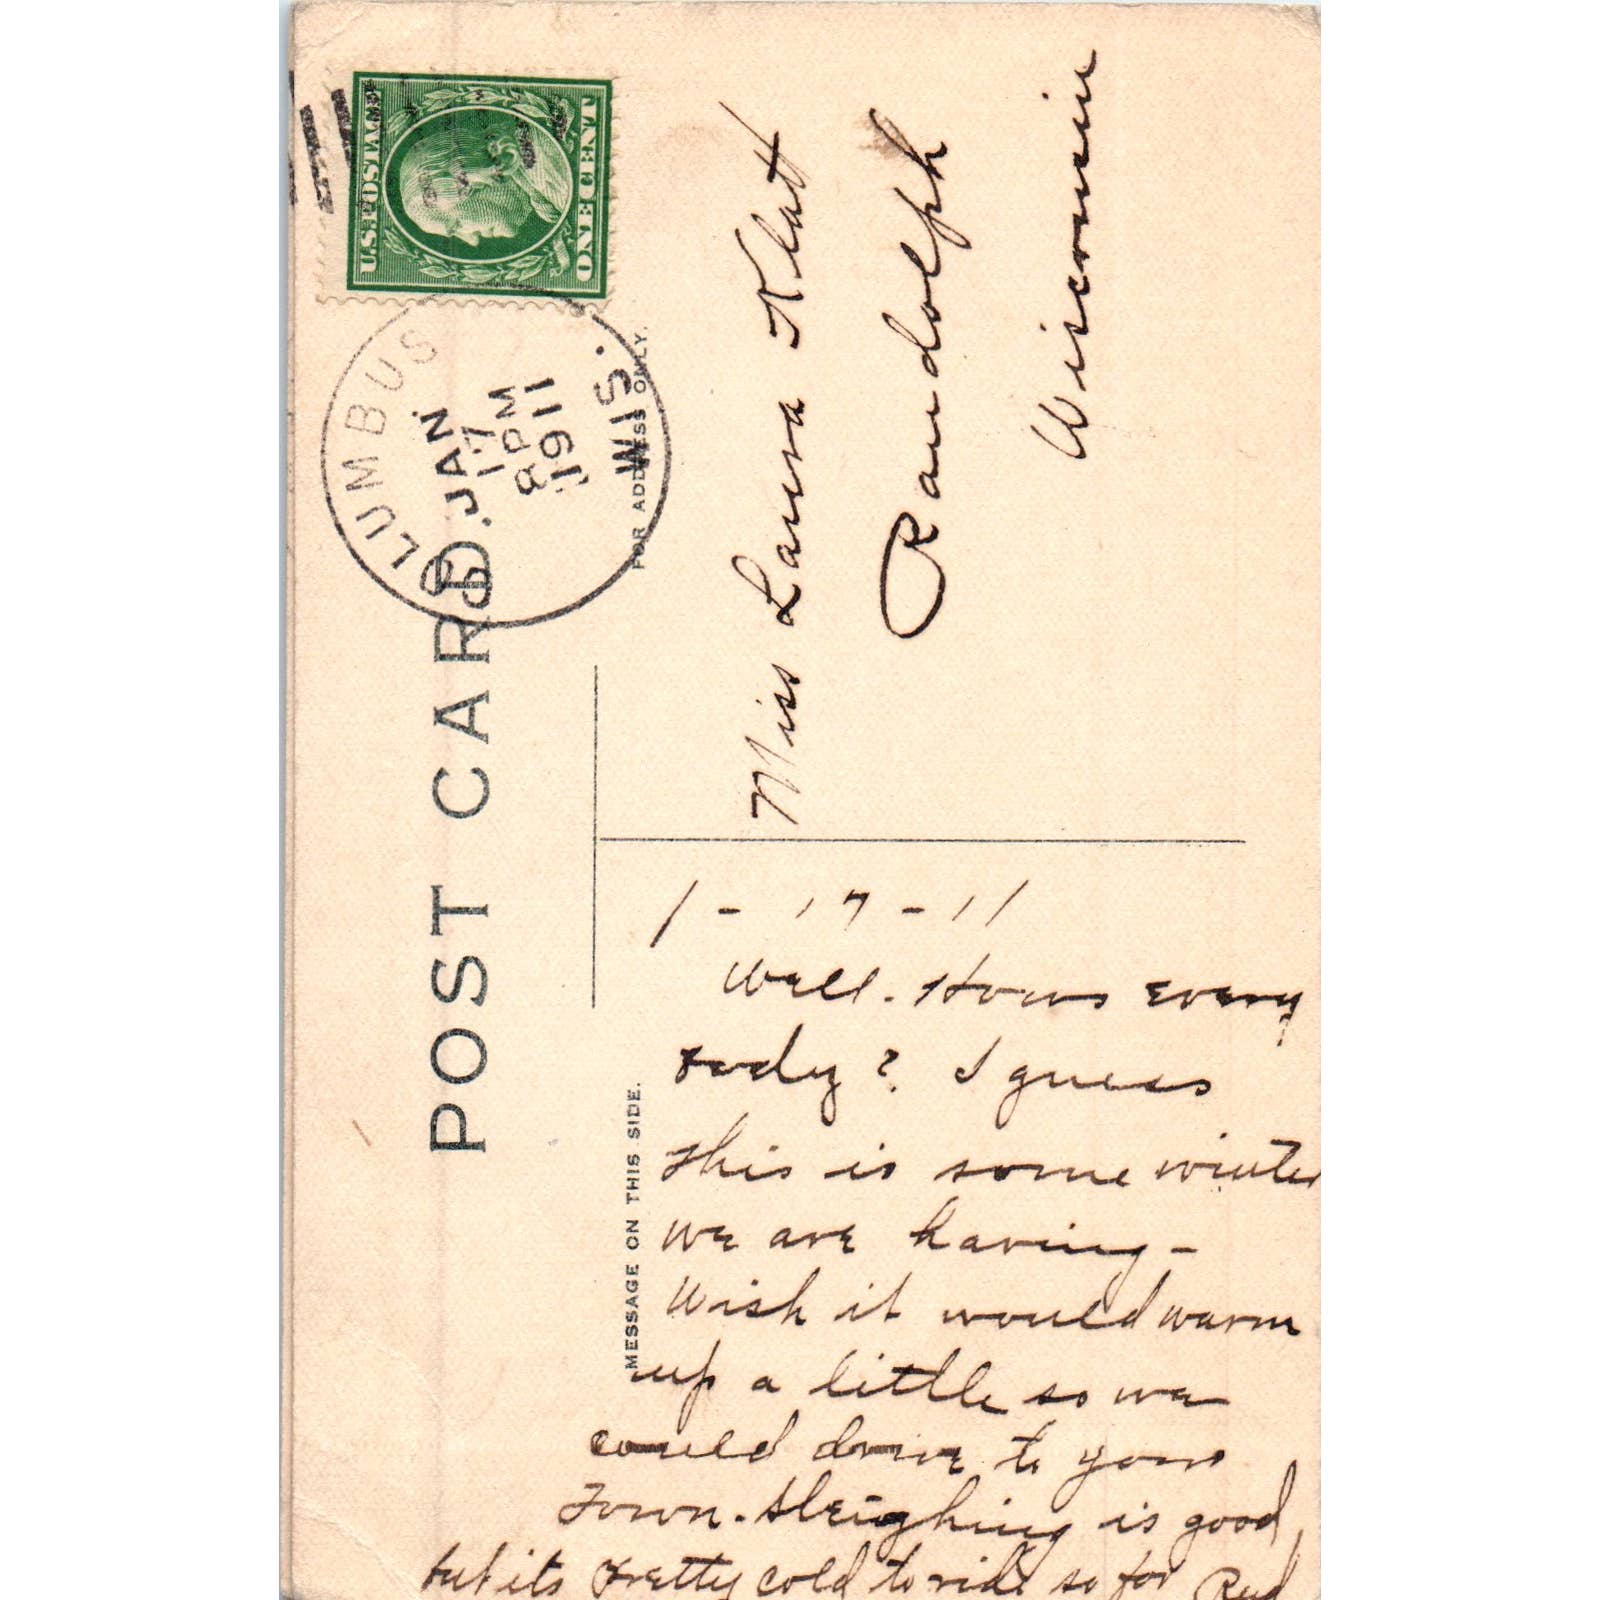 POST CARD.
U.S. POSTAGE
ONE CENT
COLUMBUS
JAN
17
8 PM
1911
WIS.
FOR ADDRESS ONLY.
Miss Laura Klatt
Randolph
Wisconsin
MESSAGE ON THIS SIDE.
1-17-11
Well. Hows every
body? I guess
this is some winter
we are having -
Wish it would warm
up a little so we
could drive to your
Town. Sleighing is good,
but its pretty cold to ride so far